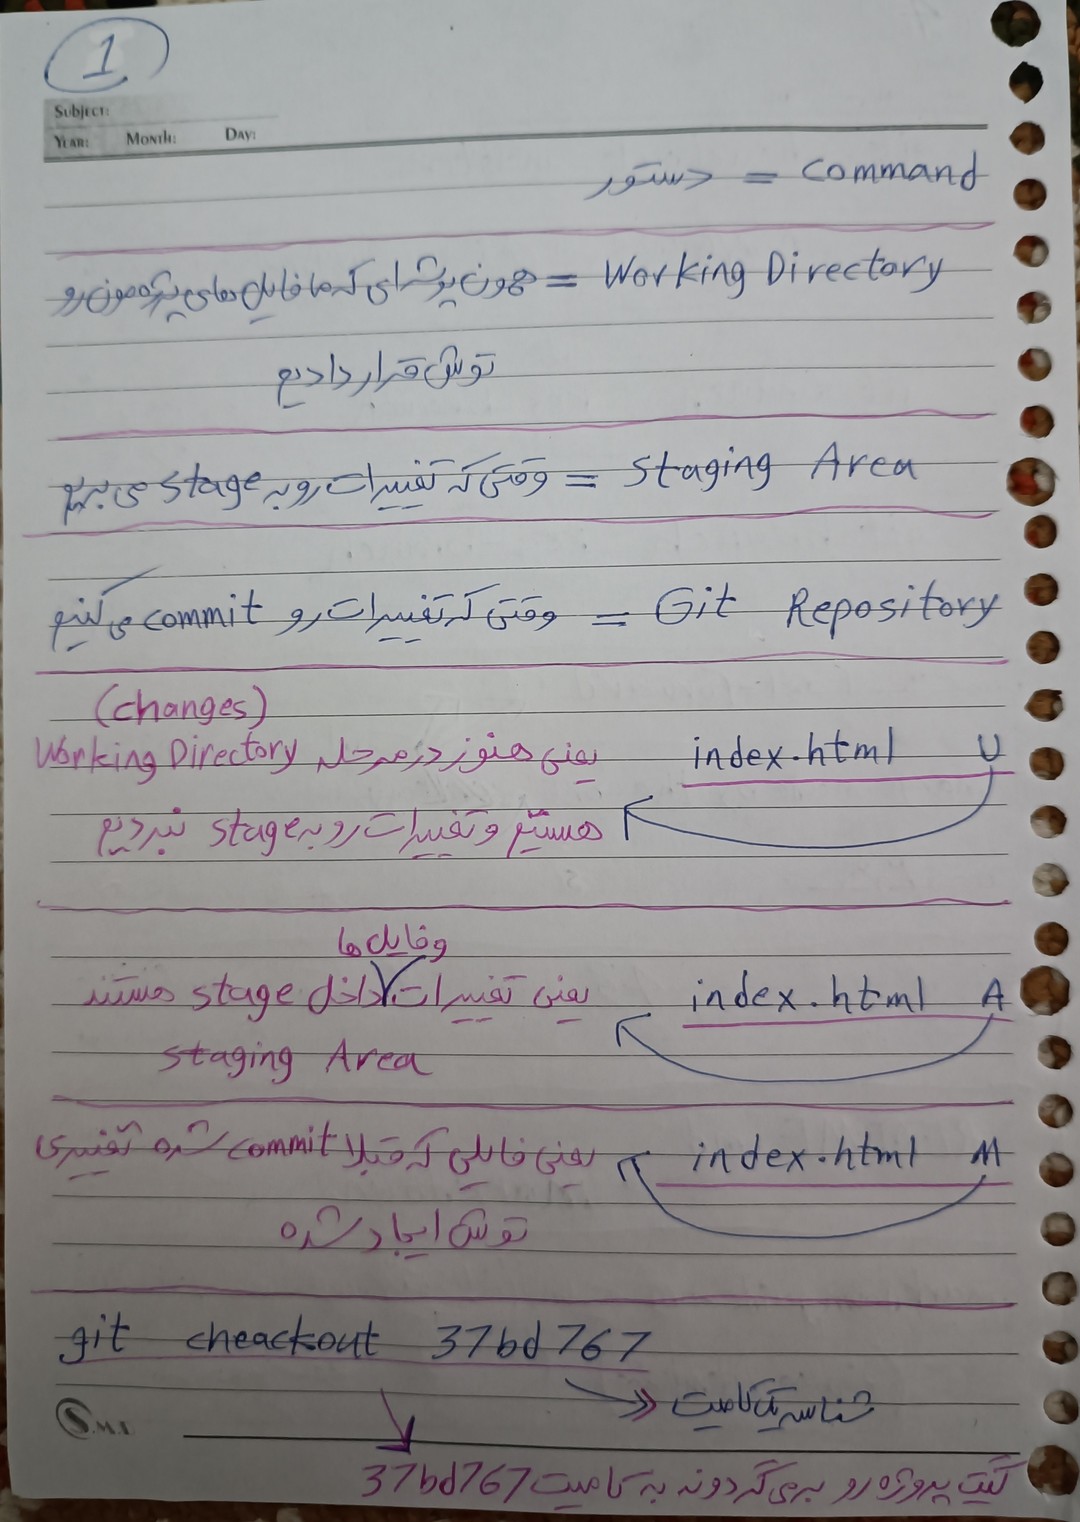 1
Subject:
Year: Month: Day:
Command = دستور
Working Directory = همون پوشه‌ای که ما فایل های پروژمون رو
توش قرار دادیم
Staging Area = وقتی که تغییرات رو به stage می بریم
Git Repository = وقتی که تغییرات رو commit می کنیم
(changes)
index.html U یعنی هنوز در مرحله Working Directory
هستیم و تغییرات رو به stage نبردیم
و فایل ها
index.html A یعنی تغییرات داخل stage هستند
staging Area
index.html M یعنی فایلی که قبلا commit شده تغییری
توش ایجاد شده
git cheackout 37bd767
شناسه یک کامیت
S.M.I
گیت پروژه رو برمی گردونه به کامیت 37bd767